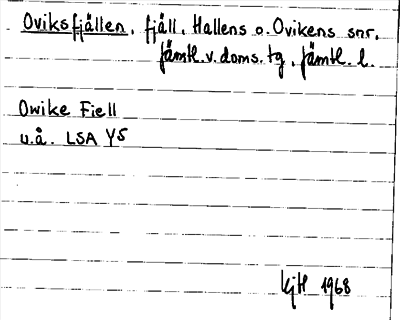 Oviksfjällen, fjäll, Hallens o. Ovikens snr,
Jämtl. v. doms. tg, Jämtl. l.
Owike Fiell
u.å. LSA Y5
KjH 1968